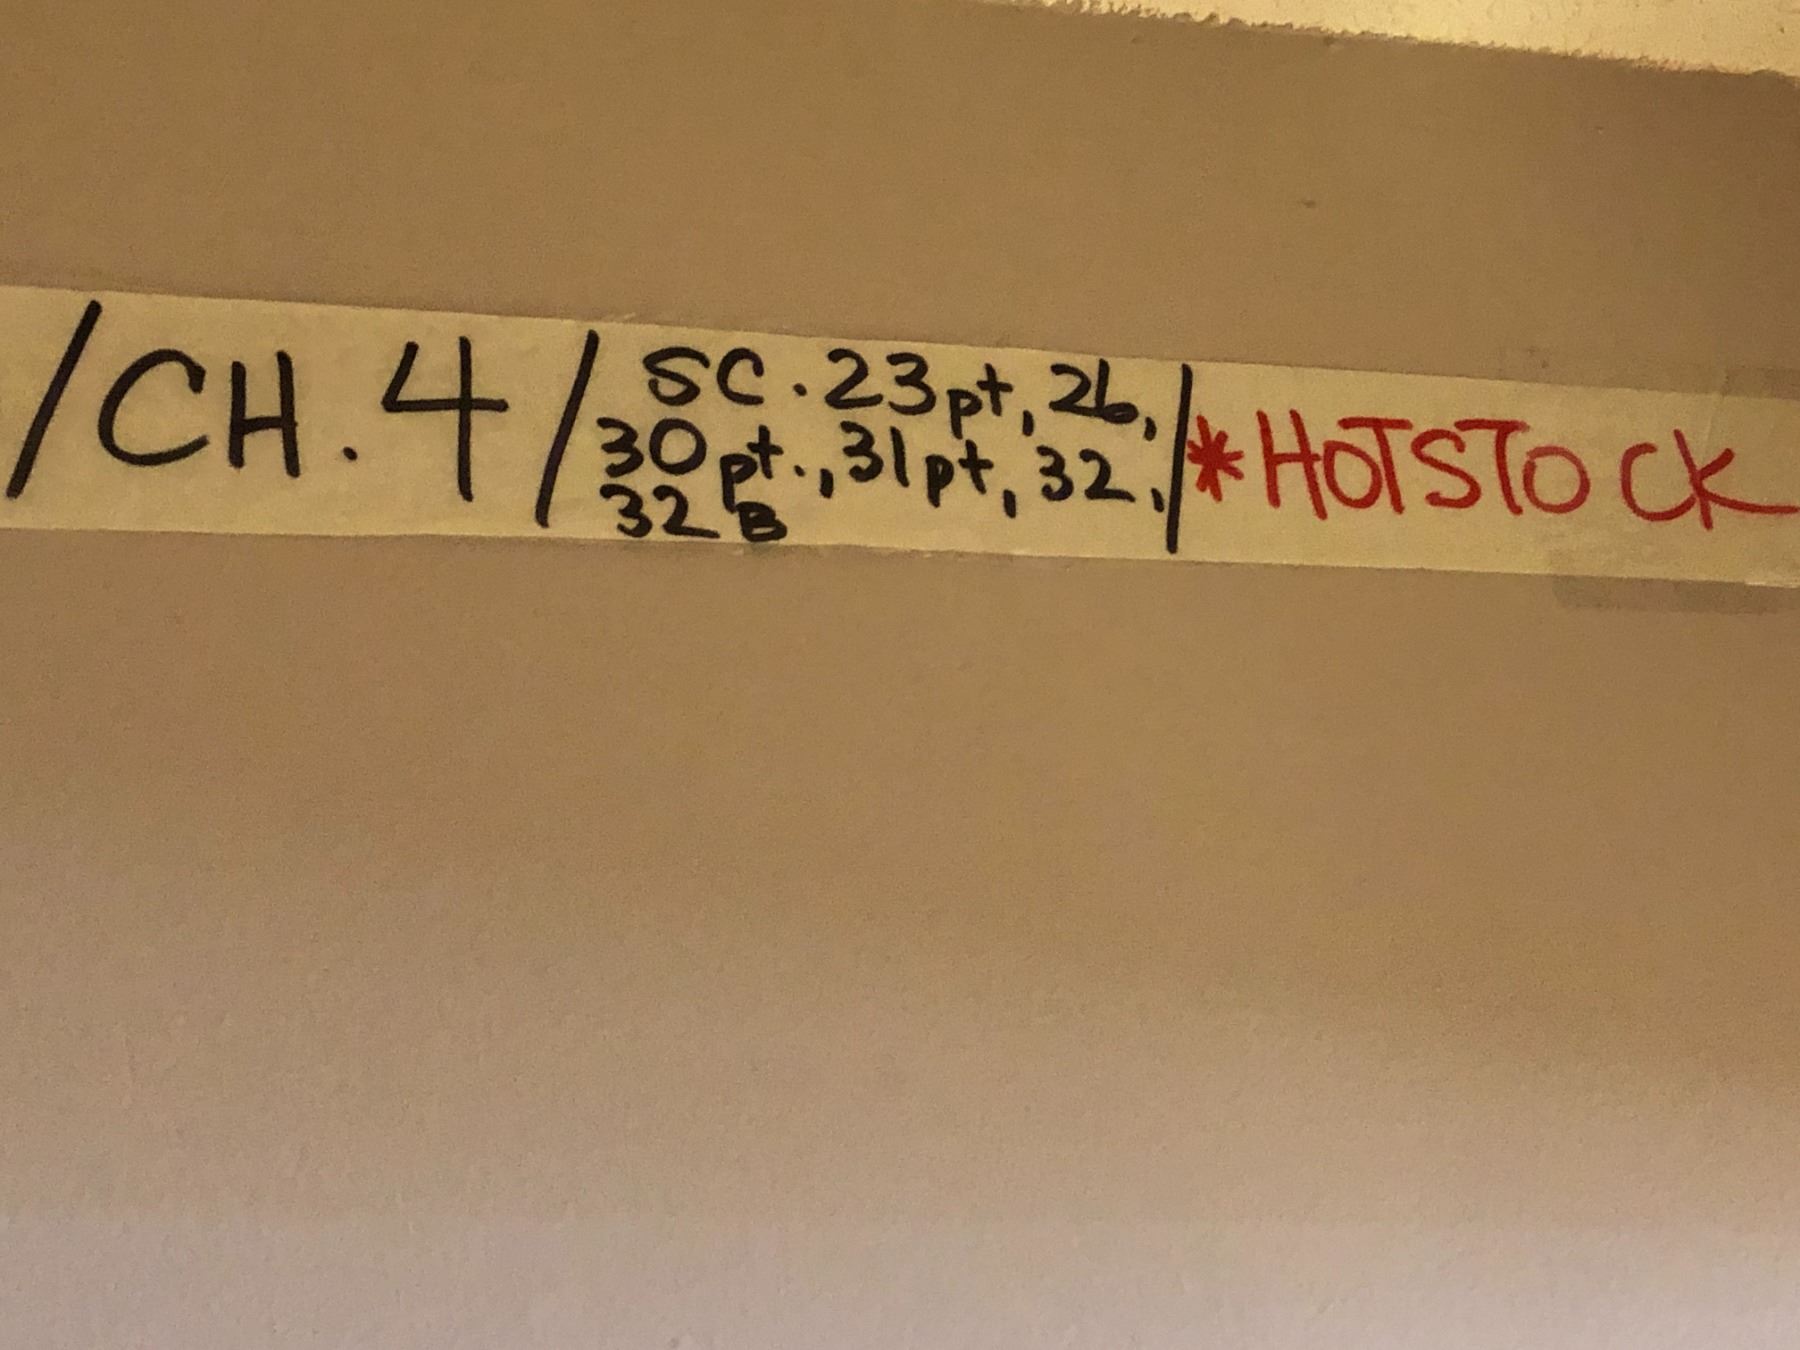 /CH. 4/
SC. 23pt, 26,
30pt., 31pt, 32,
32B
/*HOTSTOCK